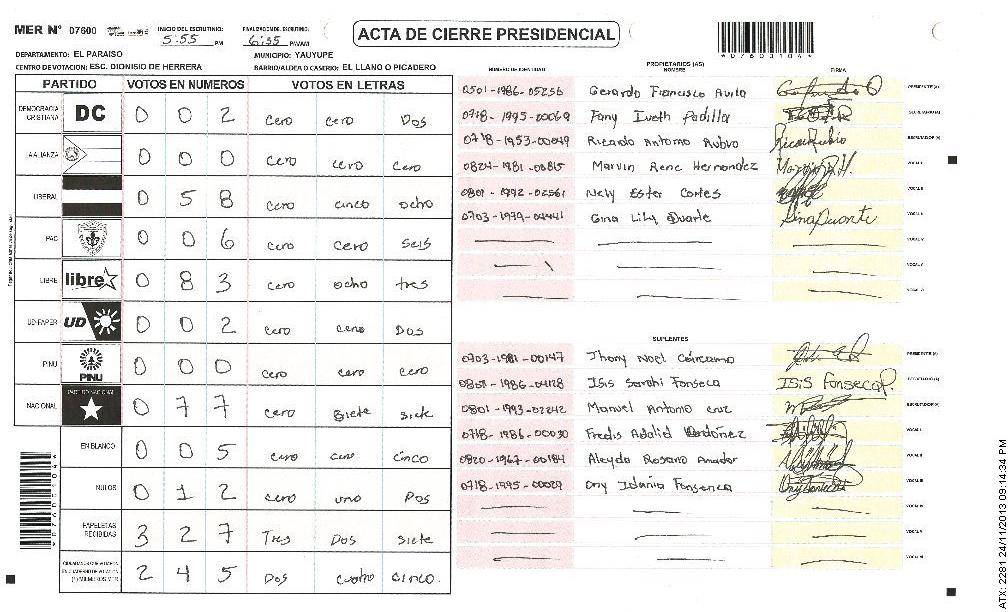 MER N° 07600 INICIO DEL ESCRUTINIO: 5:55 PM FINALIZACION DE ESCRUTINIO: 6:35 PM/AM ACTA DE CIERRE PRESIDENCIAL
DEPARTAMENTO: EL PARAISO MUNICIPIO: YAUYUPE
CENTRO DE VOTACION: ESC. DIONISIO DE HERRERA BARRIO/ALDEA O CASERIO: EL LLANO O PICADERO
PARTIDO VOTOS EN NUMEROS VOTOS EN LETRAS
DEMOCRACIA CRISTIANA DC 0 0 2 cero cero Dos
ALIANZA 0 0 0 cero cero cero
LIBERAL 0 5 8 cero cinco ocho
PAC 0 0 6 cero cero seis
LIBRE libre 0 8 3 cero ocho tres
UD-FAPER UD 0 0 2 cero cero Dos
PINU PINU 0 0 0 cero cero cero
NACIONAL PARTIDO NACIONAL 0 7 7 cero siete siete
EN BLANCO 0 0 5 cero cero cinco
NULOS 0 1 2 cero uno Dos
PAPELETAS RECIBIDAS 3 2 7 Tres Dos siete
2 4 5 Dos cuatro cinco.
PROPIETARIOS (AS)
NUMERO DE IDENTIDAD NOMBRE FIRMA
0501-1986-05256 Gerardo Francisco Avila PRESIDENTE (A)
0718-1995-00069 Fany Iveth Padilla SECRETARIO (A)
0718-1953-00049 Ricardo Antonio Rubio Ricar Rubio ESCRUTADOR (A)
0824-1981-00815 Marvin Rene Hernandez VOCAL I
0801-1992-02561 Nely Ester Cortes VOCAL II
0703-1979-04441 Gina Lily Duarte Gina Duarte VOCAL III
VOCAL IV
VOCAL V
VOCAL VI
SUPLENTES
0703-1981-00147 Jhony Noel Cárcamo PRESIDENTE (A)
0801-1986-04128 Isis Sarahi Fonseca ISis Fonseca P. SECRETARIO (A)
0801-1993-02242 Manuel Antonio Cruz ESCRUTADOR (A)
0718-1986-00030 Fredis Adalid Ordóñez VOCAL I
0820-1967-00184 Aleyda Rosario Amador VOCAL II
0718-1995-00029 Ony Idania Fonseca VOCAL III
VOCAL IV
VOCAL V
VOCAL VI
ATX: 2281 24/11/2013 09:14:34 PM